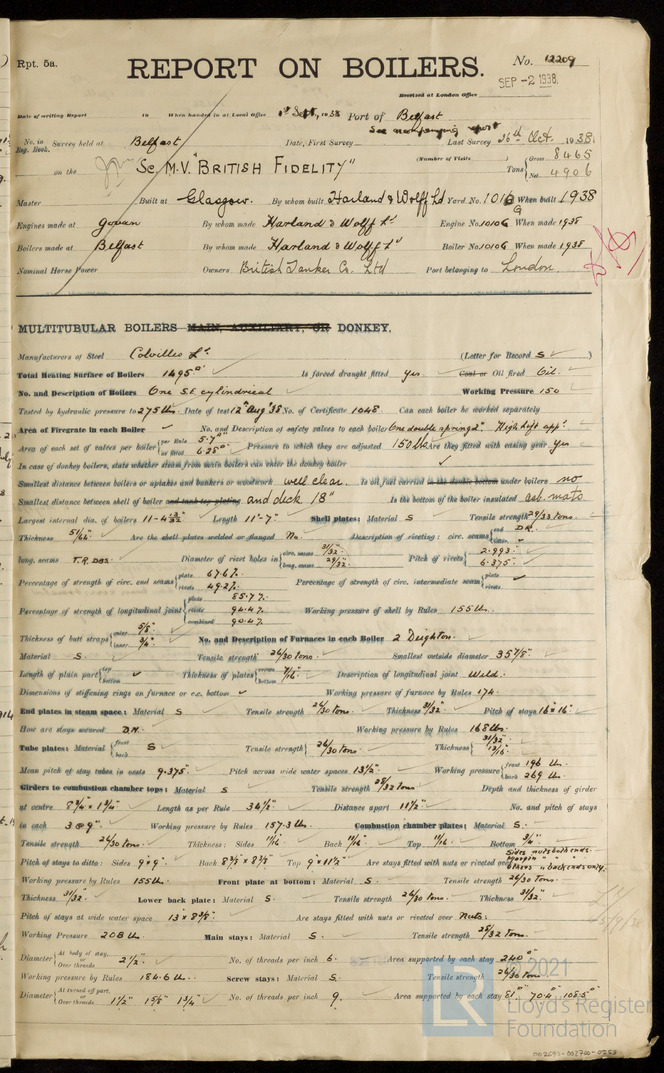 Rpt. 5a.
No. 12209
REPORT ON BOILERS.
SEP -2 1938.
Received at London Office
Date of writing Report 19 When handed in at Local Office 1st Sept, 1938 Port of Belfast
See accompanying report
No. in Reg. Book. Survey held at Belfast Date, First Survey Last Survey 26th Oct. 1938
on the Sc. M.V. "BRITISH FIDELITY" (Number of Visits ) Tons { Gross 8465 Net 4906
Master Built at Glasgow. By whom built Harland & Wolff Ld Yard No. 1016 G When built 1938
Engines made at Govan By whom made Harland & Wolff Ld Engine No. 1010G When made 1938
Boilers made at Belfast By whom made Harland & Wolff Ld Boiler No. 1010G When made 1938
Nominal Horse Power Owners British Tanker Co. Ltd Port belonging to London.
MULTITUBULAR BOILERS MAIN, AUXILIARY, OR DONKEY.
Manufacturers of Steel Colvilles Ld. (Letter for Record S )
Total Heating Surface of Boilers 1495□' Is forced draught fitted yes. Coal or Oil fired Oil.
No. and Description of Boilers One S.E. cylindrical Working Pressure 150
Tested by hydraulic pressure to 275 lbs. Date of test 12th Aug '38 No. of Certificate 1048 Can each boiler be worked separately
Area of Firegrate in each Boiler No. and Description of safety valves to each boiler One double spring 2" High lift appd.
Area of each set of valves per boiler { per Rule 5.7□" as fitted 6.28□" Pressure to which they are adjusted 150 lbs Are they fitted with easing gear yes
In case of donkey boilers, state whether steam from main boilers can enter the donkey boiler
Smallest distance between boilers or uptakes and bunkers or woodwork well clear. Is oil fuel carried in the double bottom under boilers no
Smallest distance between shell of boiler and tank top plating and deck 18" Is the bottom of the boiler insulated asb. mats
Largest internal dia. of boilers 11-4 Length 11'-7" Shell plates: Material S Tensile strength 29/33 tons.
Thickness Are the shell plates welded or flanged No. Description of riveting: circ. seams { end D.R. inter.
long. seams T.R. DBS Diameter of rivet holes in { circ. seams 31/32" long. seams 29/32" Pitch of rivets { 2.993" 6.375"
Percentage of strength of circ. end seams { plate 67.6% rivets 49.2% Percentage of strength of circ. intermediate seam { plate rivets
Percentage of strength of longitudinal joint { plate 85.7% rivets 94.4% combined 90.4% Working pressure of shell by Rules 155 lb.
Thickness of butt straps { outer 5/8" inner 3/4" No. and Description of Furnaces in each Boiler 2 Deighton.
Material S. Tensile strength 26/30 tons. Smallest outside diameter 35 7/8"
Length of plain part { top bottom Thickness of plates { crown bottom 7/16" Description of longitudinal joint Weld.
Dimensions of stiffening rings on furnace or c.c. bottom Working pressure of furnace by Rules 174.
End plates in steam space: Material S Tensile strength 26/30 tons. Thickness 31/32" Pitch of stays 16" x 16"
How are stays secured D.N. Working pressure by Rules 168 lbs.
Tube plates: Material { front back S Tensile strength { 26/30 tons. Thickness { 31/32" 13/16"
Mean pitch of stay tubes in nests 9.375" Pitch across wide water spaces 13 1/2" Working pressure { front 196 lb. back 269 lb.
Girders to combustion chamber tops: Material S Tensile strength 28/32 tons. Depth and thickness of girder
at centre 8 3/4" x 1 3/4" Length as per Rule 34 1/2" Distance apart 11 1/2" No. and pitch of stays
in each 3 @ 9" Working pressure by Rules 157.3 lb. Combustion chamber plates: Material S.
Tensile strength 26/30 tons. Thickness: Sides 11/16" Back 11/16" Top 11/16" Bottom 3/4"
Pitch of stays to ditto: Sides 9" x 9" Back 8 3/4" x 8 3/4" Top 9" x 11 1/2" Are stays fitted with nuts or riveted over Sides nuts both ends. Margin " " " Others " back ends only.
Working pressure by Rules 155 lb. Front plate at bottom: Material S. Tensile strength 26/30 tons.
Thickness 31/32" Lower back plate: Material S. Tensile strength 26/30 tons. Thickness 31/32"
Pitch of stays at wide water space 13" x 8 3/4" Are stays fitted with nuts or riveted over Nuts.
Working Pressure 208 lb Main stays: Material S. Tensile strength 28/32 tons.
Diameter { At body of stay, Over threads 2 1/2" No. of threads per inch 6. Area supported by each stay 240□"
Working pressure by Rules 184.6 lb. Screw stays: Material S. Tensile strength 26/30 tons.
Diameter { At turned off part, Over threads 1 1/2" 1 5/8" 1 3/4" No. of threads per inch 9. Area supported by each stay 81□" 70.4□" 108.5□"
LR
© 2021
Lloyd's Register
Foundation
002693-002700-0258